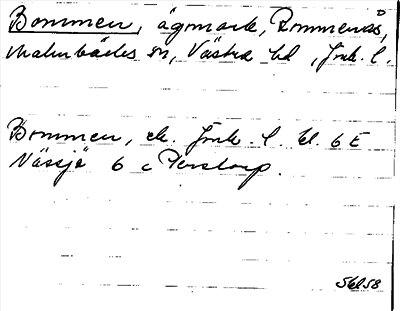 Bommen, ägomark, Bommenäs,
Malmbäcks sn, Västra hd, Jönk. l.
Bommen, ek. Jönk. l. bl. 6 E
Nässjö 6 c Perstorp.
5658